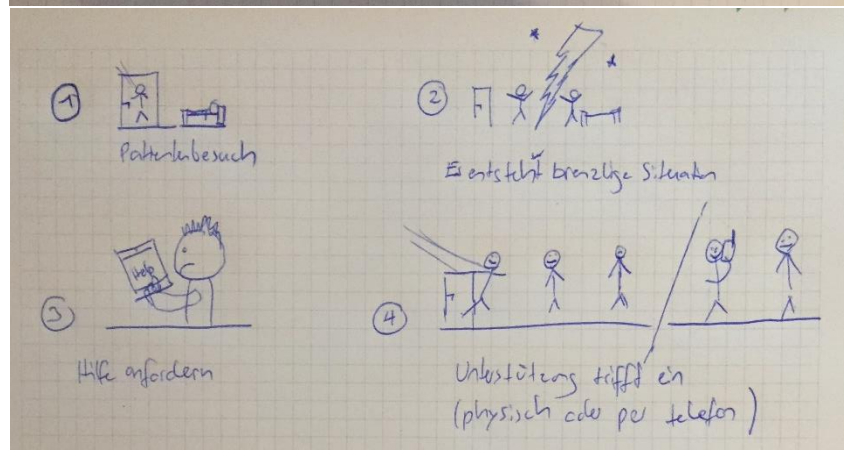 1
Patientenbesuch
2
Es entsteht brenzlige Situation
3
Help
Hilfe anfordern
4
Unterstützung trifft ein
(physisch oder per telefon)